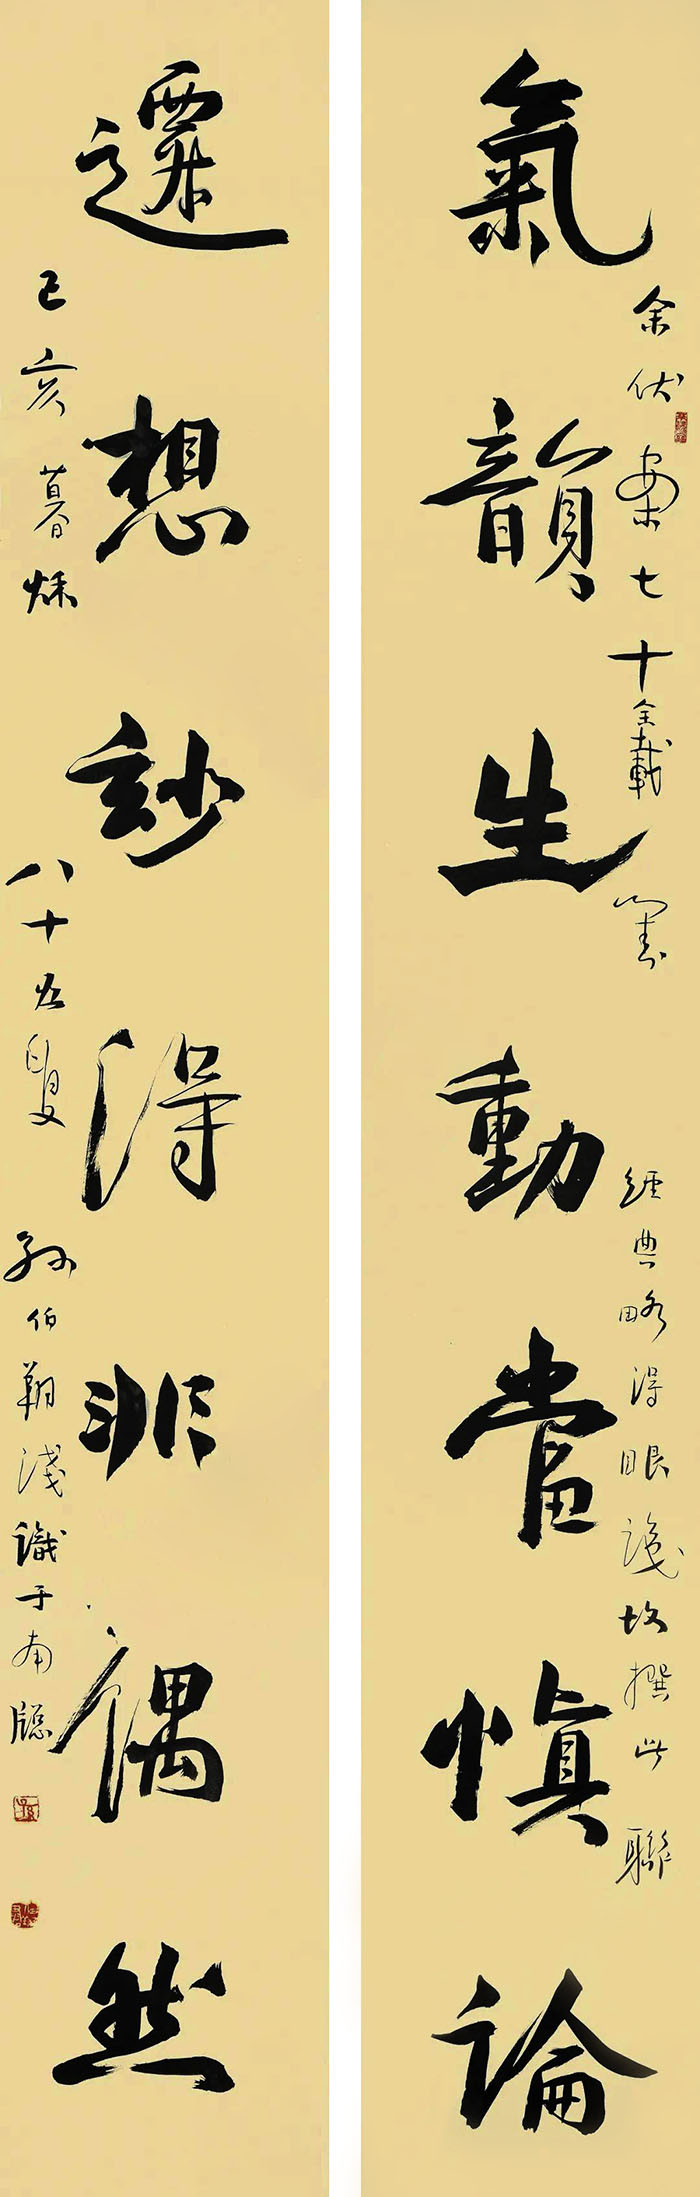 氣韻生動當慎論
余伏案七十載
經典略得眼識故撰此聯
遷想玅得非偶然
己亥暮秌
八十五叟
孫伯翔淺識于南牕